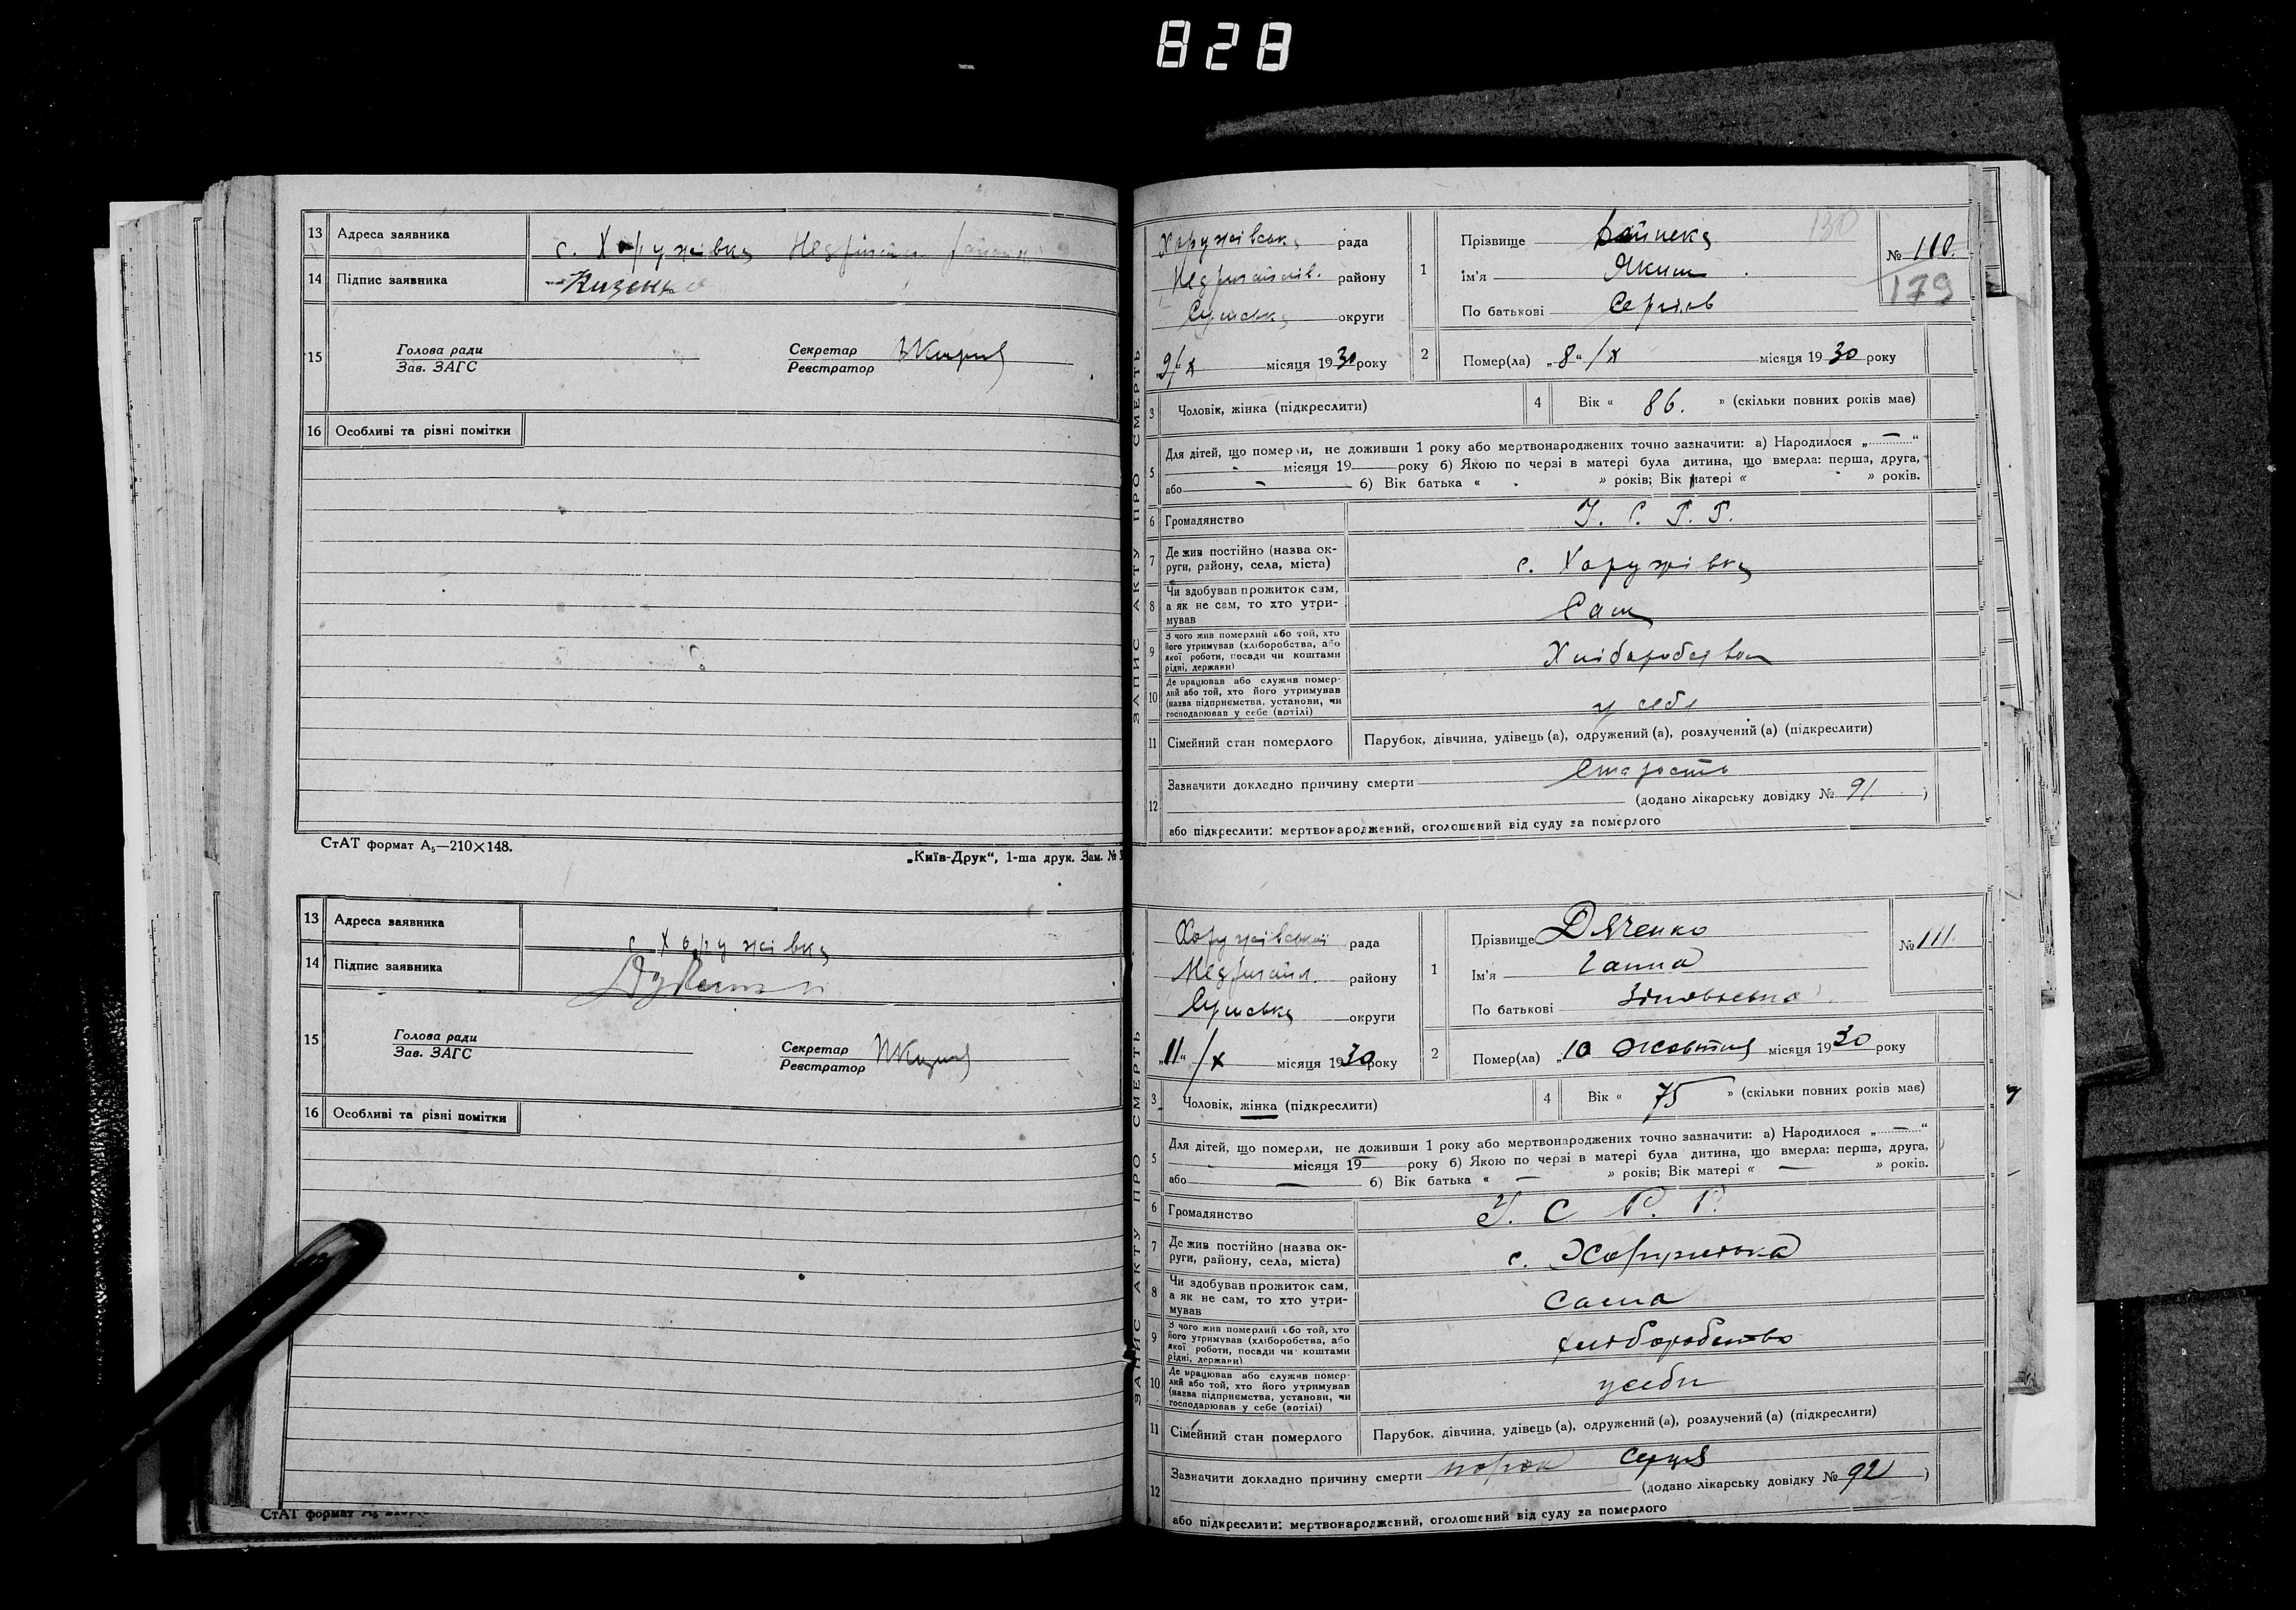 828
13 Адреса заявника с. Хоружівка Недригайл. району
14 Підпис заявника Кизенко
15 Голова ради
Зав. ЗАГС
Секретар
Реєстратор
16 Особливі та різні помітки
СтАТ формат А₅—210×148.
„Київ-Друк“, 1-ша друк. Зам. №
13 Адреса заявника с. Хоружівка
14 Підпис заявника
15 Голова ради
Зав. ЗАГС
Секретар
Реєстратор
16 Особливі та різні помітки
СтАТ формат А₅
ЗАПИС АКТУ ПРО СМЕРТЬ
Хоружівська рада
Недригайлів. району
Сумська округи
„9“/х місяця 1930 року
1 Прізвище 130
Ім'я Яким
По батькові Сергіїв
№ 110.
179
2 Помер(ла) „8“/х місяця 1930 року
3 Чоловік, жінка (підкреслити)
4 Вік « 86. » (скільки повних років має)
5 Для дітей, що померли, не доживши 1 року або мертвонароджених точно зазначити: а) Народилося „—“
місяця 19 року б) Якою по черзі в матері була дитина, що вмерла: перша, друга,
або — б) Вік батька « » років; Вік матері « » років.
6 Громадянство У. С. Р. Р.
7 Де жив постійно (назва округи, району, села, міста) с. Хоружівка
8 Чи здобував прожиток сам, а як не сам, то хто утримував Сам
9 З чого жив померлий або той, хто його утримував (хліборобства, або якої роботи, посади чи коштами рідні, держави) Хліборобство
10 Де працював або служив померлий або той, хто його утримував (назва підприємства, установи, чи господарював у себе (артілі) у себе
11 Сімейний стан померлого Парубок, дівчина, удівець (а), одружений (а), розлучений (а) (підкреслити)
12 Зазначити докладно причину смерти Старость
(додано лікарську довідку № 91 )
або підкреслити: мертвонароджений, оголошений від суду за померлого
ЗАПИС АКТУ ПРО СМЕРТЬ
Хоружівської рада
Недригайл. району
Сумська округи
„11“/х місяця 1930 року
1 Прізвище Дяченко
Ім'я Ганна
По батькові Зіновьевна
№ 111.
2 Помер(ла) „10 Жовтня місяця 1930 року
3 Чоловік, жінка (підкреслити)
4 Вік « 75 » (скільки повних років має)
5 Для дітей, що померли, не доживши 1 року або мертвонароджених точно зазначити: а) Народилося „—“
місяця 19— року б) Якою по черзі в матері була дитина, що вмерла: перша, друга,
або — б) Вік батька « — » років; Вік матері « — » років.
6 Громадянство У. С. Р. Р.
7 Де жив постійно (назва округи, району, села, міста) с. Хоружівка
8 Чи здобував прожиток сам, а як не сам, то хто утримував Сама
9 З чого жив померлий або той, хто його утримував (хліборобства, або якої роботи, посади чи коштами рідні, держави) хліборобство
10 Де працював або служив померлий або той, хто його утримував (назва підприємства, установи, чи господарював у себе (артілі) усеби
11 Сімейний стан померлого Парубок, дівчина, удівець (а), одружений (а), розлучений (а) (підкреслити)
12 Зазначити докладно причину смерти порок серця
(додано лікарську довідку № 92 )
або підкреслити: мертвонароджений, оголошений від суду за померлого